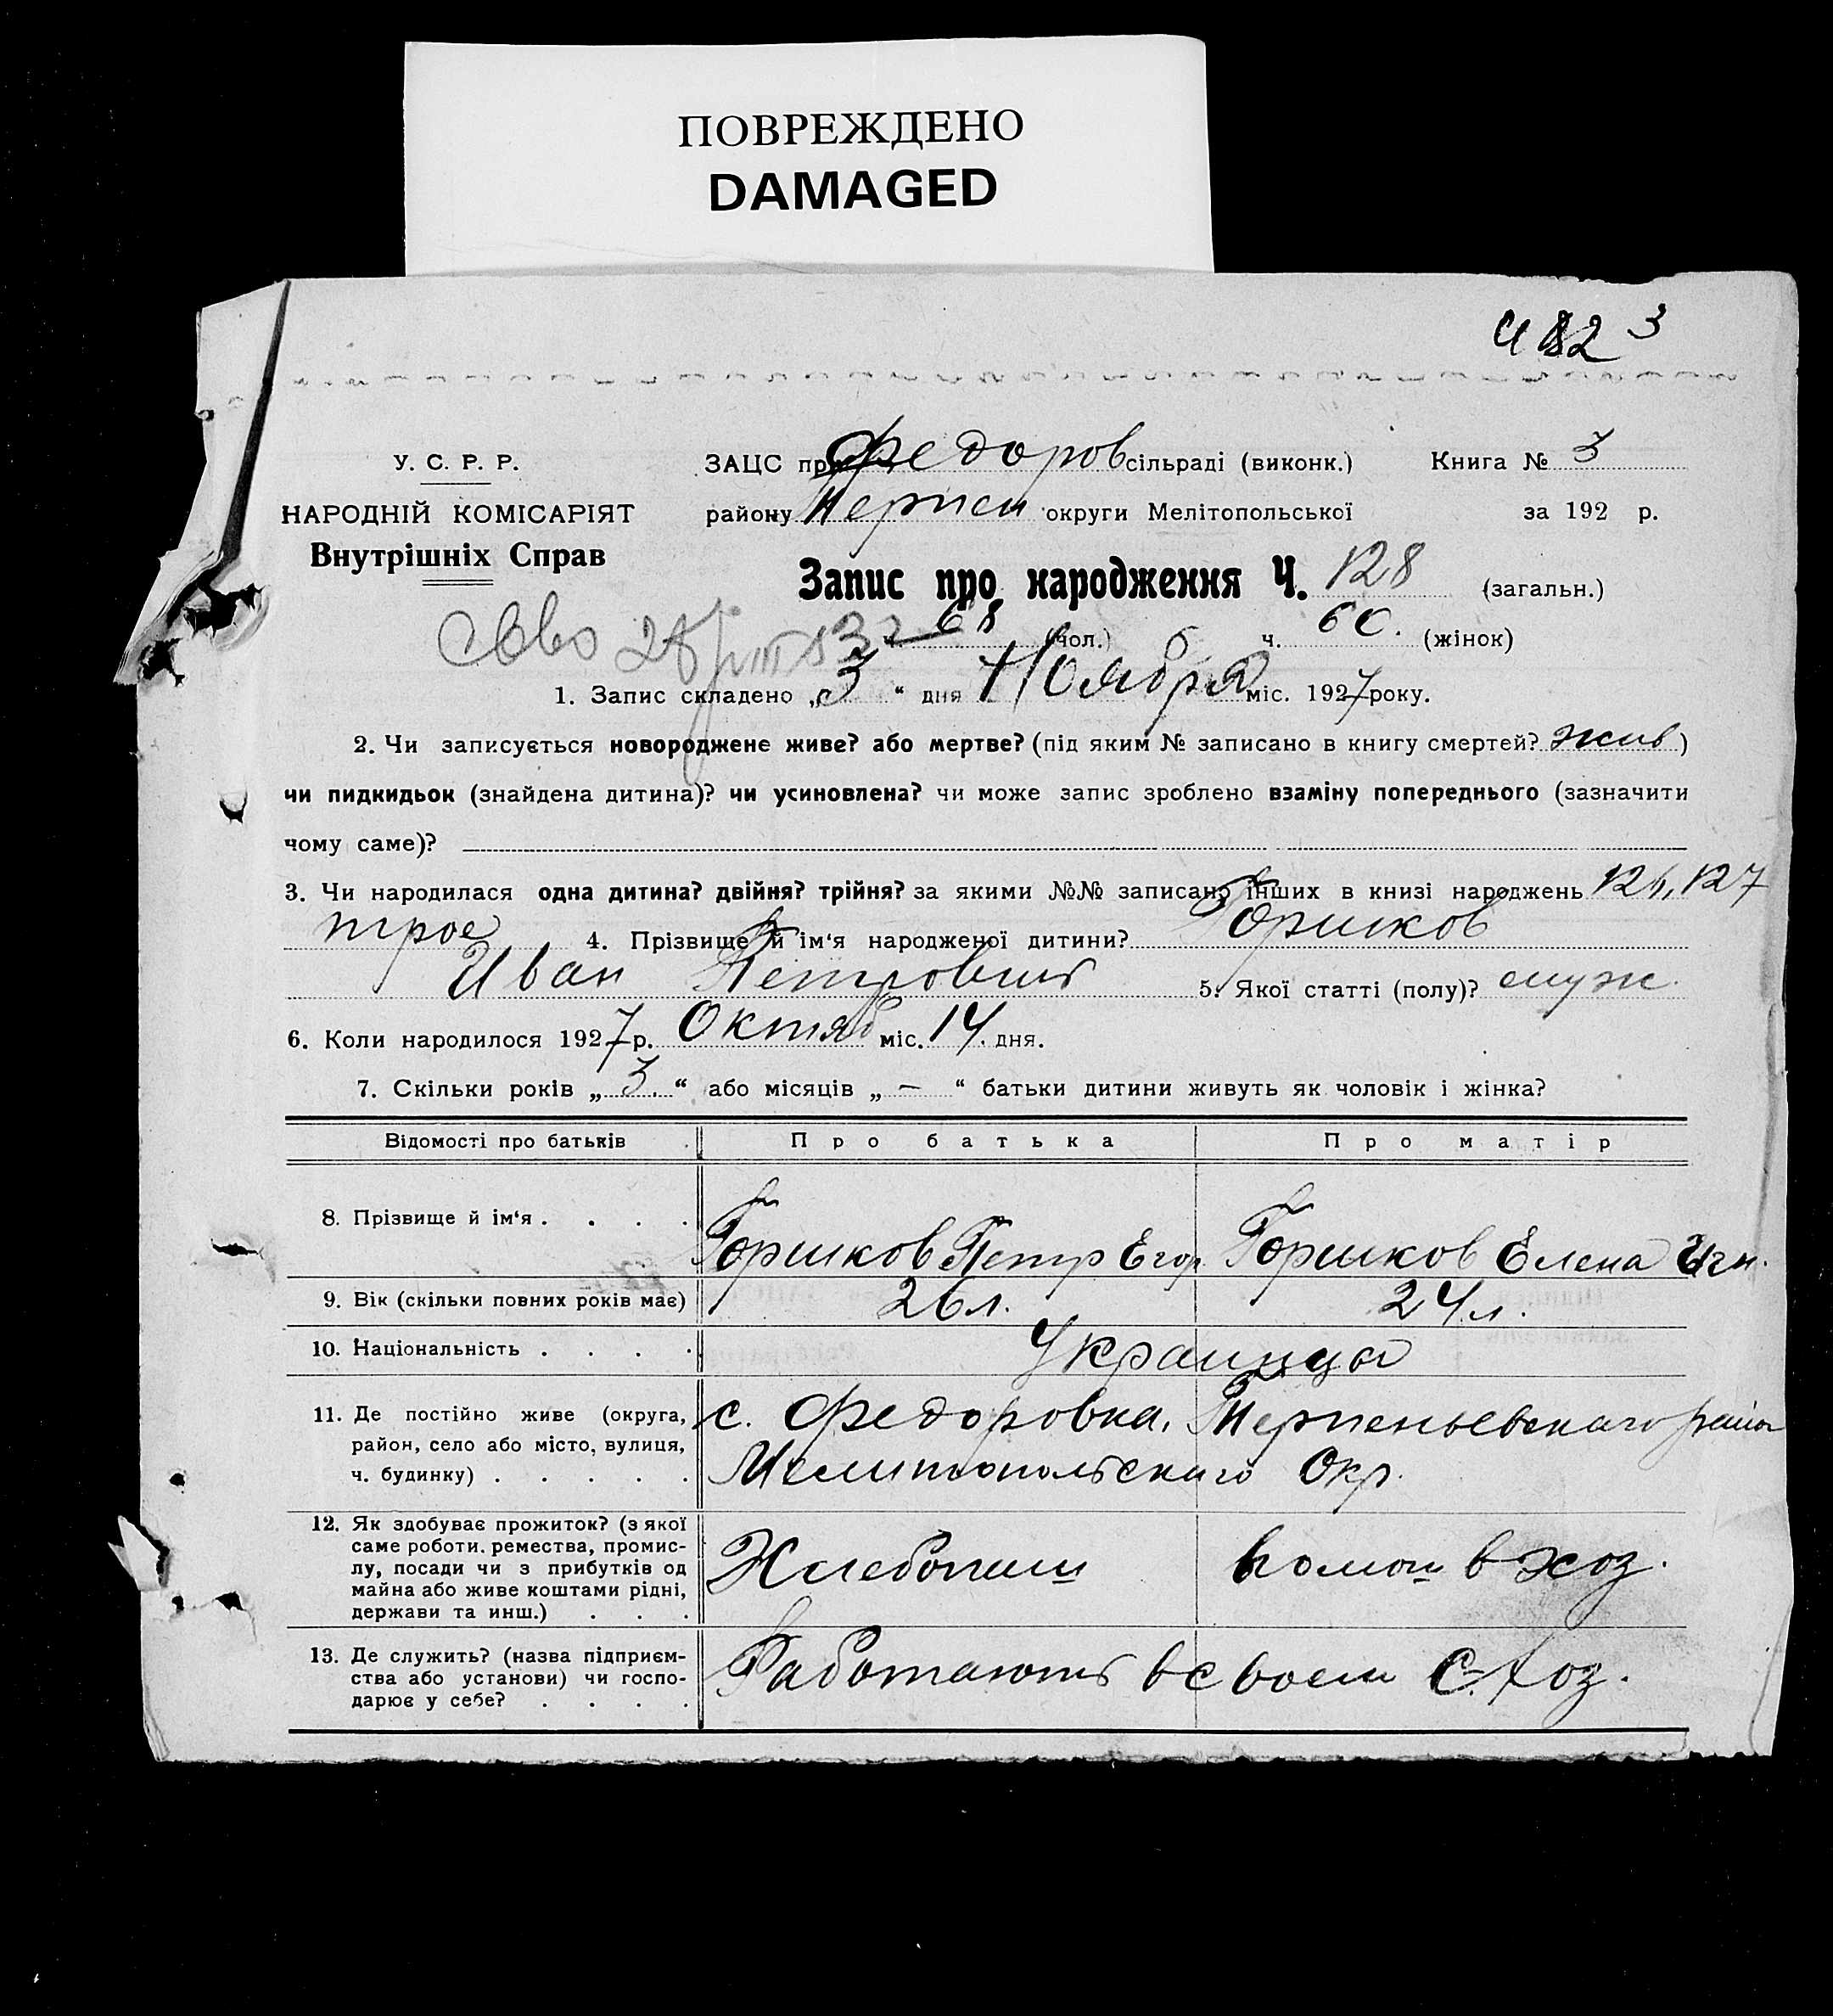 ПОВРЕЖДЕНО
DAMAGED
482 3
У. С. Р. Р.
НАРОДНІЙ КОМІСАРІЯТ
Внутрішніх Справ
ЗАЦС при Федоров сільраді (виконк.) Книга № 3
району Терпен округи Мелітопольської за 192 р.
Запис про народження Ч. 128 (загальн.)
68 (чол.) ч. 60. (жінок)
1. Запис складено „3“ дня Ноября міс. 1927 року.
2. Чи записується новороджене живе? або мертве? (під яким № записано в книгу смертей? жив)
чи пидкидьок (знайдена дитина)? чи усиновлена? чи може запис зроблено взаміну попереднього (зазначити
чому саме)?
3. Чи народилася одна дитина? двійня? трійня? за якими №№ записано інших в книзі народжень 126, 127
трое 4. Прізвище й ім‘я народженої дитини? Горшков
Иван Петрович 5. Якої статті (полу)? муж.
6. Коли народилося 1927 р. Октяб міс. 14. дня.
7. Скільки років „3.“ або місяців „—“ батьки дитини живуть як чоловік і жінка?
Відомості про батьків Про батька Про матір
8. Прізвище й ім‘я . . . . Горшков Петр Егор Горшков Елена Игн.
9. Вік (скільки повних років має) 26 л. 24 л.
10. Національність . . . . Украинцы
11. Де постійно живе (округа, район, село або місто, вулиця, ч. будинку) . . . . . с. Федоровка, Терпеньевскаго район
Мелитопольскаго Окр.
12. Як здобуває прожиток? (з якої саме роботи, ремества, промислу, посади чи з прибутків од майна або живе коштами рідні, держави та инш.) . . . Хлебопаш помощ в хоз.
13. Де служить? (назва підприємства або установи) чи господарює у себе? . . . . Работают в своем С. Хоз.